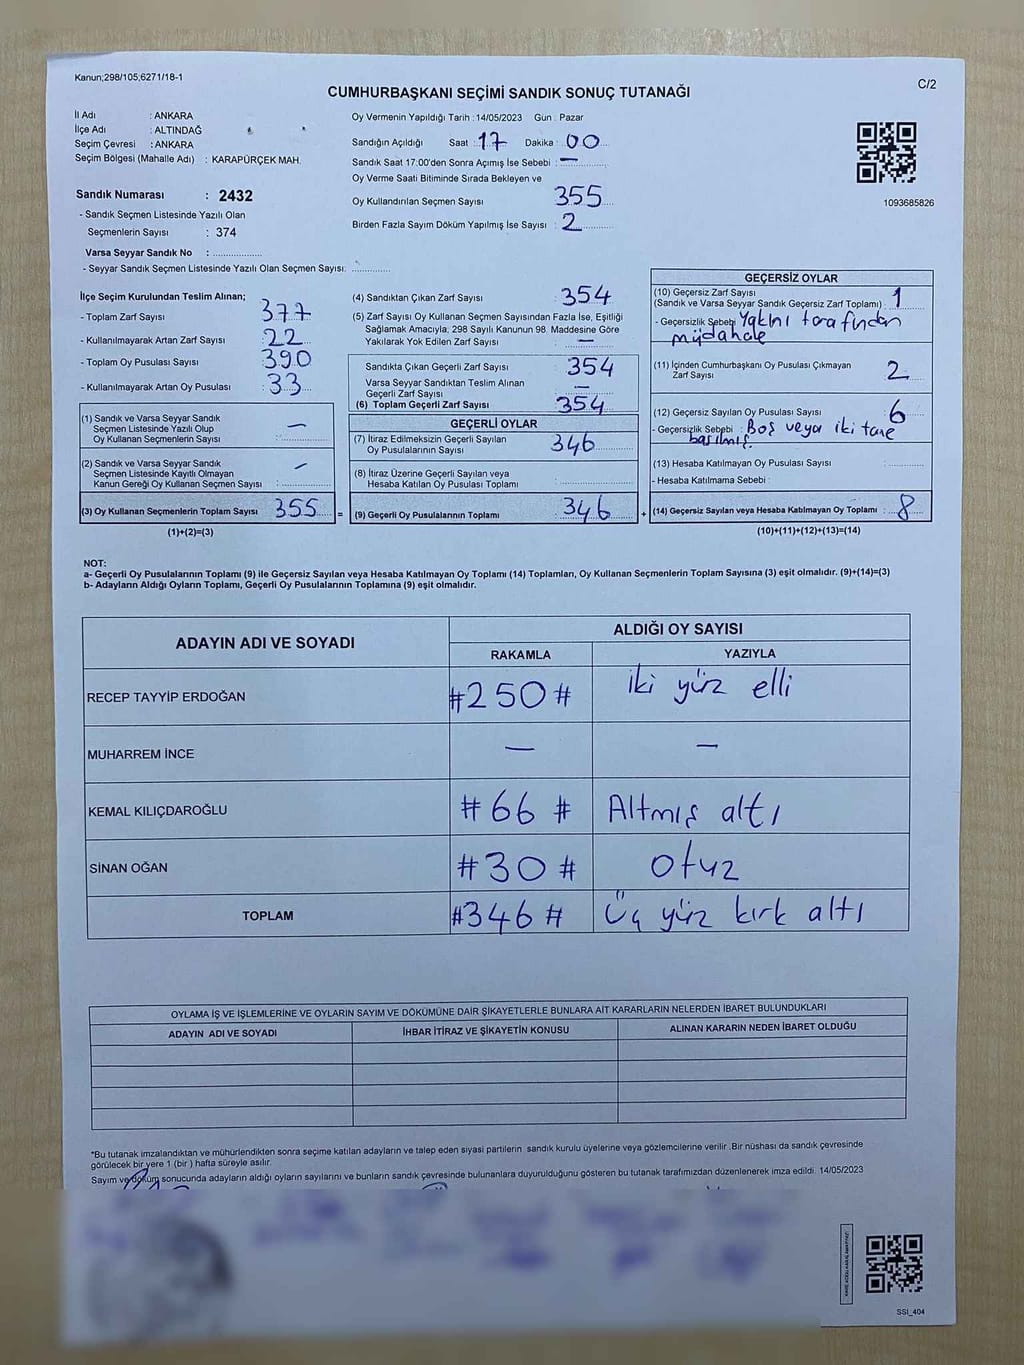 Kanun;298/105,6271/18-1
C/2
CUMHURBAŞKANI SEÇİMİ SANDIK SONUÇ TUTANAĞI
İl Adı : ANKARA
İlçe Adı : ALTINDAĞ
Seçim Çevresi : ANKARA
Seçim Bölgesi (Mahalle Adı) : KARAPÜRÇEK MAH.
Sandık Numarası : 2432
- Sandık Seçmen Listesinde Yazılı Olan
Seçmenlerin Sayısı : 374
Varsa Seyyar Sandık No :
- Seyyar Sandık Seçmen Listesinde Yazılı Olan Seçmen Sayısı:
Oy Vermenin Yapıldığı Tarih : 14/05/2023 Gün : Pazar
Sandığın Açıldığı Saat : 17 Dakika : 00
Sandık Saat 17:00'den Sonra Açımış İse Sebebi : —
Oy Verme Saati Bitiminde Sırada Bekleyen ve
Oy Kullandırılan Seçmen Sayısı 355
Birden Fazla Sayım Döküm Yapılmış İse Sayısı : 2
1093685826
İlçe Seçim Kurulundan Teslim Alınan;
- Toplam Zarf Sayısı : 377
- Kullanılmayarak Artan Zarf Sayısı : 22
- Toplam Oy Pusulası Sayısı : 390
- Kullanılmayarak Artan Oy Pusulası : 33
(1) Sandık ve Varsa Seyyar Sandık
Seçmen Listesinde Yazılı Olup
Oy Kullanan Seçmenlerin Sayısı : —
(2) Sandık ve Varsa Seyyar Sandık
Seçmen Listesinde Kayıtlı Olmayan
Kanun Gereği Oy Kullanan Seçmen Sayısı : —
(3) Oy Kullanan Seçmenlerin Toplam Sayısı 355 =
(1)+(2)=(3)
(4) Sandıktan Çıkan Zarf Sayısı : 354
(5) Zarf Sayısı Oy Kullanan Seçmen Sayısından Fazla İse, Eşitliği
Sağlamak Amacıyla, 298 Sayılı Kanunun 98. Maddesine Göre
Yakılarak Yok Edilen Zarf Sayısı : —
Sandıkta Çıkan Geçerli Zarf Sayısı : 354
Varsa Seyyar Sandıktan Teslim Alınan
Geçerli Zarf Sayısı : —
(6) Toplam Geçerli Zarf Sayısı : 354
GEÇERLİ OYLAR
(7) İtiraz Edilmeksizin Geçerli Sayılan
Oy Pusulalarının Sayısı : 346
(8) İtiraz Üzerine Geçerli Sayılan veya
Hesaba Katılan Oy Pusulası Toplamı :
(9) Geçerli Oy Pusulalarının Toplamı : 346 +
GEÇERSİZ OYLAR
(10) Geçersiz Zarf Sayısı
(Sandık ve Varsa Seyyar Sandık Geçersiz Zarf Toplamı) : 1
- Geçersizlik Sebebi : Yakını tarafından
müdahale
(11) İçinden Cumhurbaşkanı Oy Pusulası Çıkmayan
Zarf Sayısı : 2
(12) Geçersiz Sayılan Oy Pusulası Sayısı : 6
- Geçersizlik Sebebi : Boş veya iki tane
basılmış.
(13) Hesaba Katılmayan Oy Pusulası Sayısı :
- Hesaba Katılmama Sebebi :
(14) Geçersiz Sayılan veya Hesaba Katılmayan Oy Toplamı : 8
(10)+(11)+(12)+(13)=(14)
NOT:
a- Geçerli Oy Pusulalarının Toplamı (9) ile Geçersiz Sayılan veya Hesaba Katılmayan Oy Toplamı (14) Toplamları, Oy Kullanan Seçmenlerin Toplam Sayısına (3) eşit olmalıdır. (9)+(14)=(3)
b- Adayların Aldığı Oyların Toplamı, Geçerli Oy Pusulalarının Toplamına (9) eşit olmalıdır.
ADAYIN ADI VE SOYADI ALDIĞI OY SAYISI
RAKAMLA YAZIYLA
RECEP TAYYİP ERDOĞAN #250# iki yüz elli
MUHARREM İNCE — —
KEMAL KILIÇDAROĞLU #66# Altmış altı
SİNAN OĞAN #30# otuz
TOPLAM #346# Üç yüz kırk altı
OYLAMA İŞ VE İŞLEMLERİNE VE OYLARIN SAYIM VE DÖKÜMÜNE DAİR ŞİKAYETLERLE BUNLARA AİT KARARLARIN NELERDEN İBARET BULUNDUKLARI
ADAYIN ADI VE SOYADI İHBAR İTİRAZ VE ŞİKAYETİN KONUSU ALINAN KARARIN NEDEN İBARET OLDUĞU
*Bu tutanak imzalandıktan ve mühürlendikten sonra seçime katılan adayların ve talep eden siyasi partilerin sandık kurulu üyelerine veya gözlemcilerine verilir .Bir nüshası da sandık çevresinde
görülecek bir yere 1 (bir ) hafta süreyle asılır.
Sayım ve döküm sonucunda adayların aldığı oyların sayılarını ve bunların sandık çevresinde bulunanlara duyurulduğunu gösteren bu tutanak tarafımızdan düzenlenerek imza edildi. 14/05/2023
SSİ_404